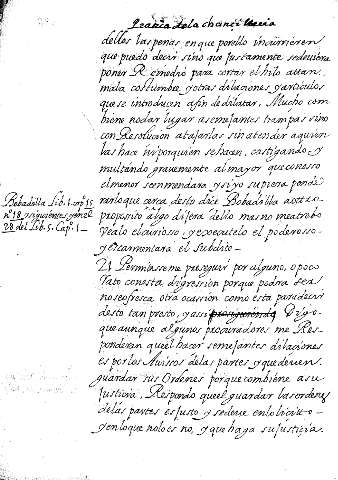 Practica de la chancilleria
dellos las penas, en que por ello incurrieren
que puedo decir sino que justamente se deviera
poner Remedio para cortar el hilo a tan
mala costumbre, y otras dilaciones, y articulos
que se introducen a fin de dilatar. Mucho com
biene no dar lugar a semejantes trampas sino
con Resolucion atajarlas sin atender a quien
las hace ni por quien se hacen, castigando, y
multando gravemente al mayor que con esso
el menor se enmendara, y si yo supiera ponde
rar lo que cerca desto dice Bobadilla a otro
proposito algo dijera dello mas no me atrebo
Vealo el curioso, y executelo el poderoso
y escarmentara el subdito-
Bobadilla Lib. 1. cap. 15
nº 18. y siguientes, y en el
28 del Lib. 5. Cap. 1-
U Permitaseme proseguir por algun, o poco
rato con esta digression porque podra ser
no se ofresca otra occasion como esta para decir
desto tan presto, y assi prosiguiendo Digo
que aunque algunos procuradores me Res
ponderan que el hacer semejantes dilaciones
es por los Avisos de las partes y que deven
guardar sus Ordenes porque combiene a su
justicia, Respondo que el guardar las ordenes
de las partes es justo, y se deve en lo licito-
y en lo que no lo es no, y que haga su justicia.